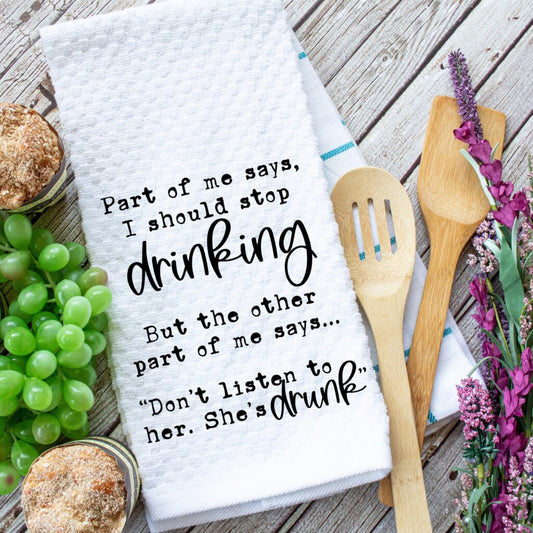 Part of me says,
I should stop
drinking
But the other
part of me says...
"Don't listen to
her. She's drunk"